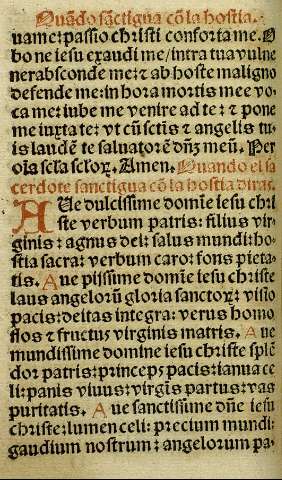 Quãdo sãctigua cõ la hostia.
uame: passio christi conforta me. O
bone iesu exaudi me / intra tua vulne
ra absconde me: ⁊ ab hoste maligno
defende me: in hora mortis mee vo
ca me: iube me venire ad te: ⁊ pone
me iuxta te: vt cũ sctĩs ⁊ angelis tu
is laudẽ te saluatorẽ dñʒ meũ. Per
oĩa scĩa scĩoꝝ. Amen. Quando el sa
cerdote sanctigua cõ la hostia diras.
AUe dulcissime domĩe iesu chri
ste verbum patris: filius vir
ginis: agnus dei: salus mundi: ho
stia sacra: verbum caro: fons pieta
tis. Aue pijssime domĩe iesu christe
laus angeloꝝ gloria sanctoꝝ: visio
pacis: deitas integra: verus homo
flos ⁊ fructus virginis matris. Aue
mundissime domine iesu christe splẽ
dor patris: princeps pacis: ianua ce
li: panis viuus: virgĩs partus: vas
puritatis. Aue sanctissime dñe iesu
christe: lumen celi: precium mundi:
gaudium nostrum: angelorum pa-